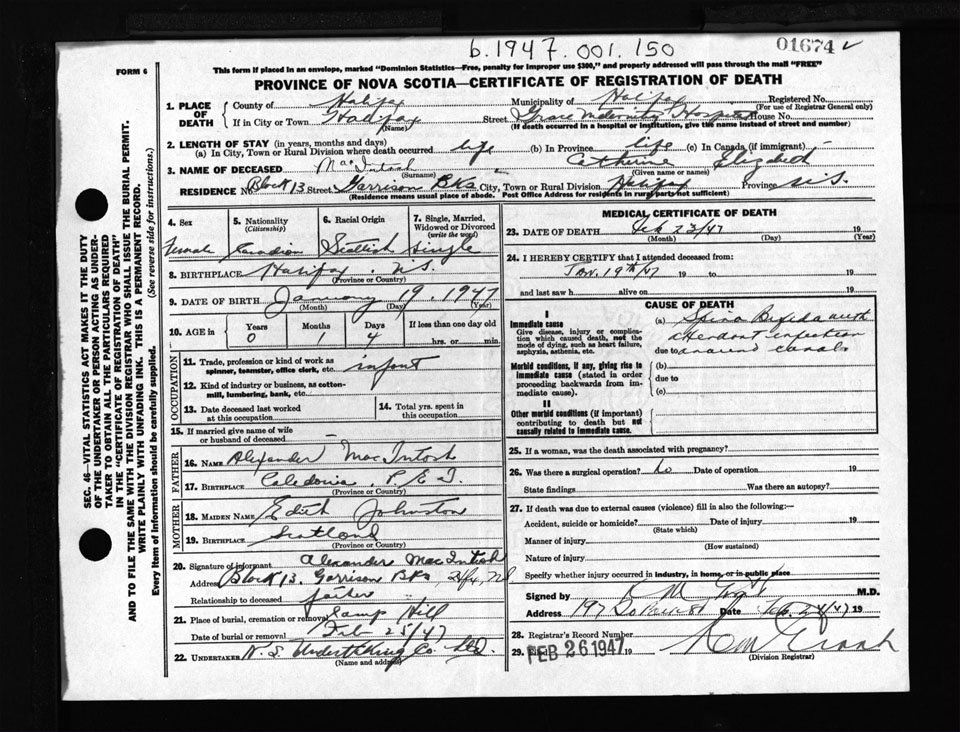 6.1947.001.150
01674
FORM 6
This form if placed in an envelope, marked "Dominion Statistics—Free, penalty for improper use $300," and properly addressed will pass through the mail "FREE"
PROVINCE OF NOVA SCOTIA—CERTIFICATE OF REGISTRATION OF DEATH
SEC. 46—VITAL STATISTICS ACT MAKES IT THE DUTY OF THE UNDERTAKER OR PERSON ACTING AS UNDERTAKER TO OBTAIN ALL THE PARTICULARS REQUIRED IN THE "CERTIFICATE OF REGISTRATION OF DEATH" AND TO FILE THE SAME WITH THE DIVISION REGISTRAR WHO SHALL ISSUE THE BURIAL PERMIT.
WRITE PLAINLY WITH UNFADING INK. THIS IS A PERMANENT RECORD.
Every item of Information should be carefully supplied. (See reverse side for instructions.)
1. PLACE OF DEATH County of Halifax Municipality of Halifax Registered No.
(For use of Registrar General only)
If in City or Town Halifax Street Grace Maternity Hospital House No.
(Name) (If death occurred in a hospital or institution, give the name instead of street and number)
2. LENGTH OF STAY (in years, months and days)
(a) In City, Town or Rural Division where death occurred life (b) In Province life (c) In Canada (if immigrant)
3. NAME OF DECEASED MacIntosh Catherine Elizabeth
(Surname) (Given name or names)
RESIDENCE No Block 13 Street Garrison Bks City, Town or Rural Division Halifax Province N.S.
(Residence means usual place of abode. Post Office Address for residents in rural parts not sufficient)
4. Sex 5. Nationality 6. Racial Origin 7. Single, Married,
(Citizenship) Widowed or Divorced
(write the word)
Female Canadian Scottish Single
8. BIRTHPLACE Halifax, N.S.
(Province or Country)
9. DATE OF BIRTH January 19, 1947
(Month) (Day) (Year)
10. AGE in Years Months Days If less than one day old
0 1 4 hrs. or min.
OCCUPATION
11. Trade, profession or kind of work as
spinner, teamster, office clerk, etc. infant
12. Kind of industry or business, as cotton-
mill, lumbering, bank, etc.
13. Date deceased last worked
at this occupation
14. Total yrs. spent in
this occupation
15. If married give name of wife
or husband of deceased
FATHER
16. NAME Alexander MacIntosh
17. BIRTHPLACE Caledonia, P.E.I.
(Province or Country)
MOTHER
18. MAIDEN NAME Edith Johnston
19. BIRTHPLACE Scotland
(Province or Country)
20. Signature of informant Alexander MacIntosh
Address Block 13, Garrison Bks, Hfx, NS
Relationship to deceased father
21. Place of burial, cremation or removal Camp Hill
Date of burial or removal Feb 25/47
22. UNDERTAKER N.S. Undertaking Co. Ltd.
(Name and address)
MEDICAL CERTIFICATE OF DEATH
23. DATE OF DEATH Feb 23/47 19
(Month) (Day) (Year)
24. I HEREBY CERTIFY that I attended deceased from:
Jan. 19th/47 19 to 19
and last saw h alive on 19
CAUSE OF DEATH
I
Immediate cause
Give disease, injury or complication which caused death, not the mode of dying, such as heart failure, asphyxia, asthenia, etc.
(a) Spina Bifida with
due to
Morbid conditions, if any, giving rise to immediate cause (stated in order proceeding backwards from immediate cause).
(b)
due to
(c)
II
Other morbid conditions (if important) contributing to death but not causally related to immediate cause.
25. If a woman, was the death associated with pregnancy?
26. Was there a surgical operation? no Date of operation 19
State findings Was there an autopsy?
27. If death was due to external causes (violence) fill in also the following:—
Accident, suicide or homicide? Date of injury 19
(State which)
Manner of injury
(How sustained)
Nature of injury
Specify whether injury occurred in industry, in home, or in public place
Signed by M.D.
Address 197 Date Feb. 24/47 19
28. Registrar's Record Number
29. FEB 26 1947 19
(Division Registrar)